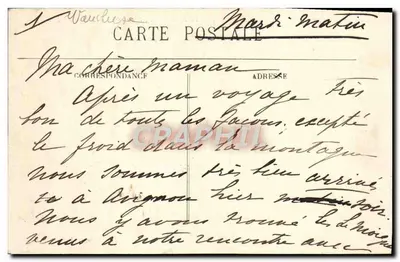 Vaucluse
Mardi matin
CARTE POSTALE
Ma chère maman
CORRESPONDANCE
ADRESSE
Après un voyage très
bon de toute les façons, excepté
le froid dans la montagne
nous sommes très bien arrivés
à Avignon hier matin soir.
Nous y avons trouvé les de
venus à notre rencontre avec
CPAPHIL